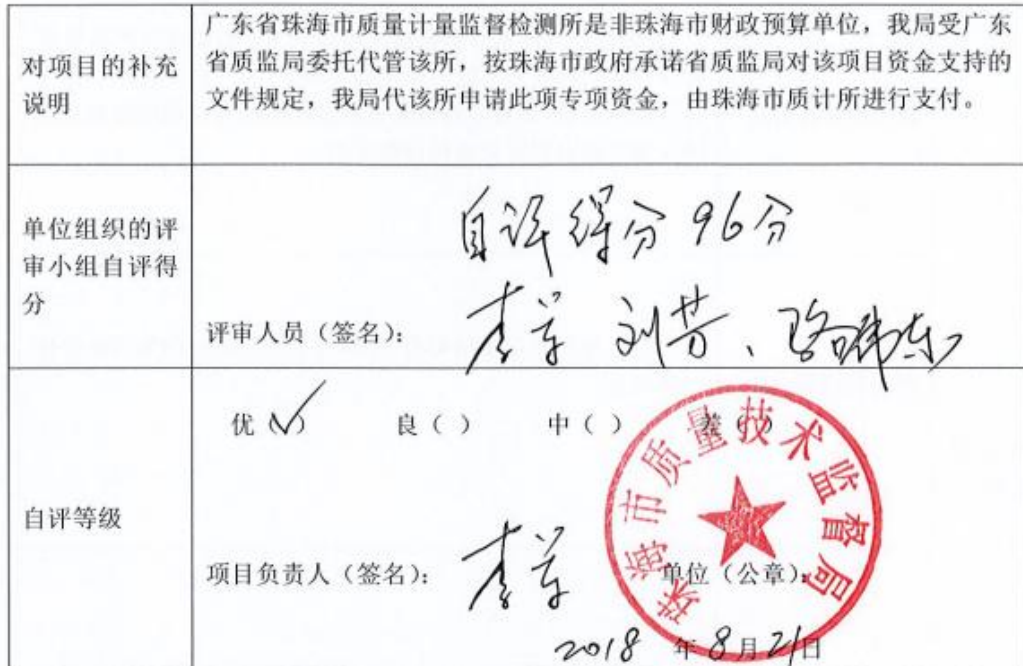 对项目的补充
说明
广东省珠海市质量计量监督检测所是非珠海市财政预算单位，我局受广东
省质监局委托代管该所，按珠海市政府承诺省质监局对该项目资金支持的
文件规定，我局代该所申请此项专项资金，由珠海市质计所进行支付。
单位组织的评
审小组自评得
分
自评得分 96分
评审人员（签名）：
刘芳、
自评等级
优（✓） 良（ ） 中（ ） 差（ ）
项目负责人（签名）：
单位（公章）：
珠海市质量技术监督局
2018 年 8 月 21 日